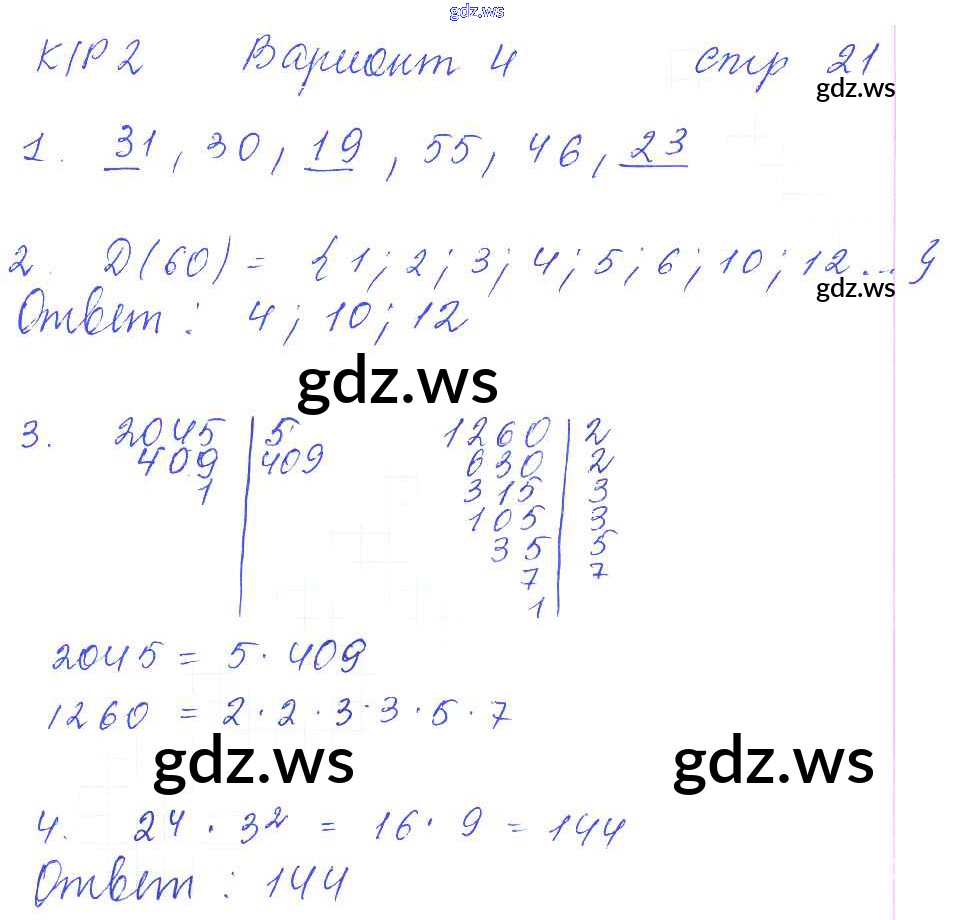 gdz.ws
К/Р 2 Вариант 4 стр 21
gdz.ws
1. 31, 30, 19, 55, 46, 23
2. D(60) = {1; 2; 3; 4; 5; 6; 10; 12...}
gdz.ws
Ответ: 4; 10; 12
gdz.ws
3. 2045 | 5 1260 | 2
409 | 409 630 | 2
1 315 | 3
105 | 3
35 | 5
7 | 7
1
2045 = 5 · 409
1260 = 2 · 2 · 3 · 3 · 5 · 7
gdz.ws gdz.ws
4. 2⁴ · 3² = 16 · 9 = 144
Ответ: 144